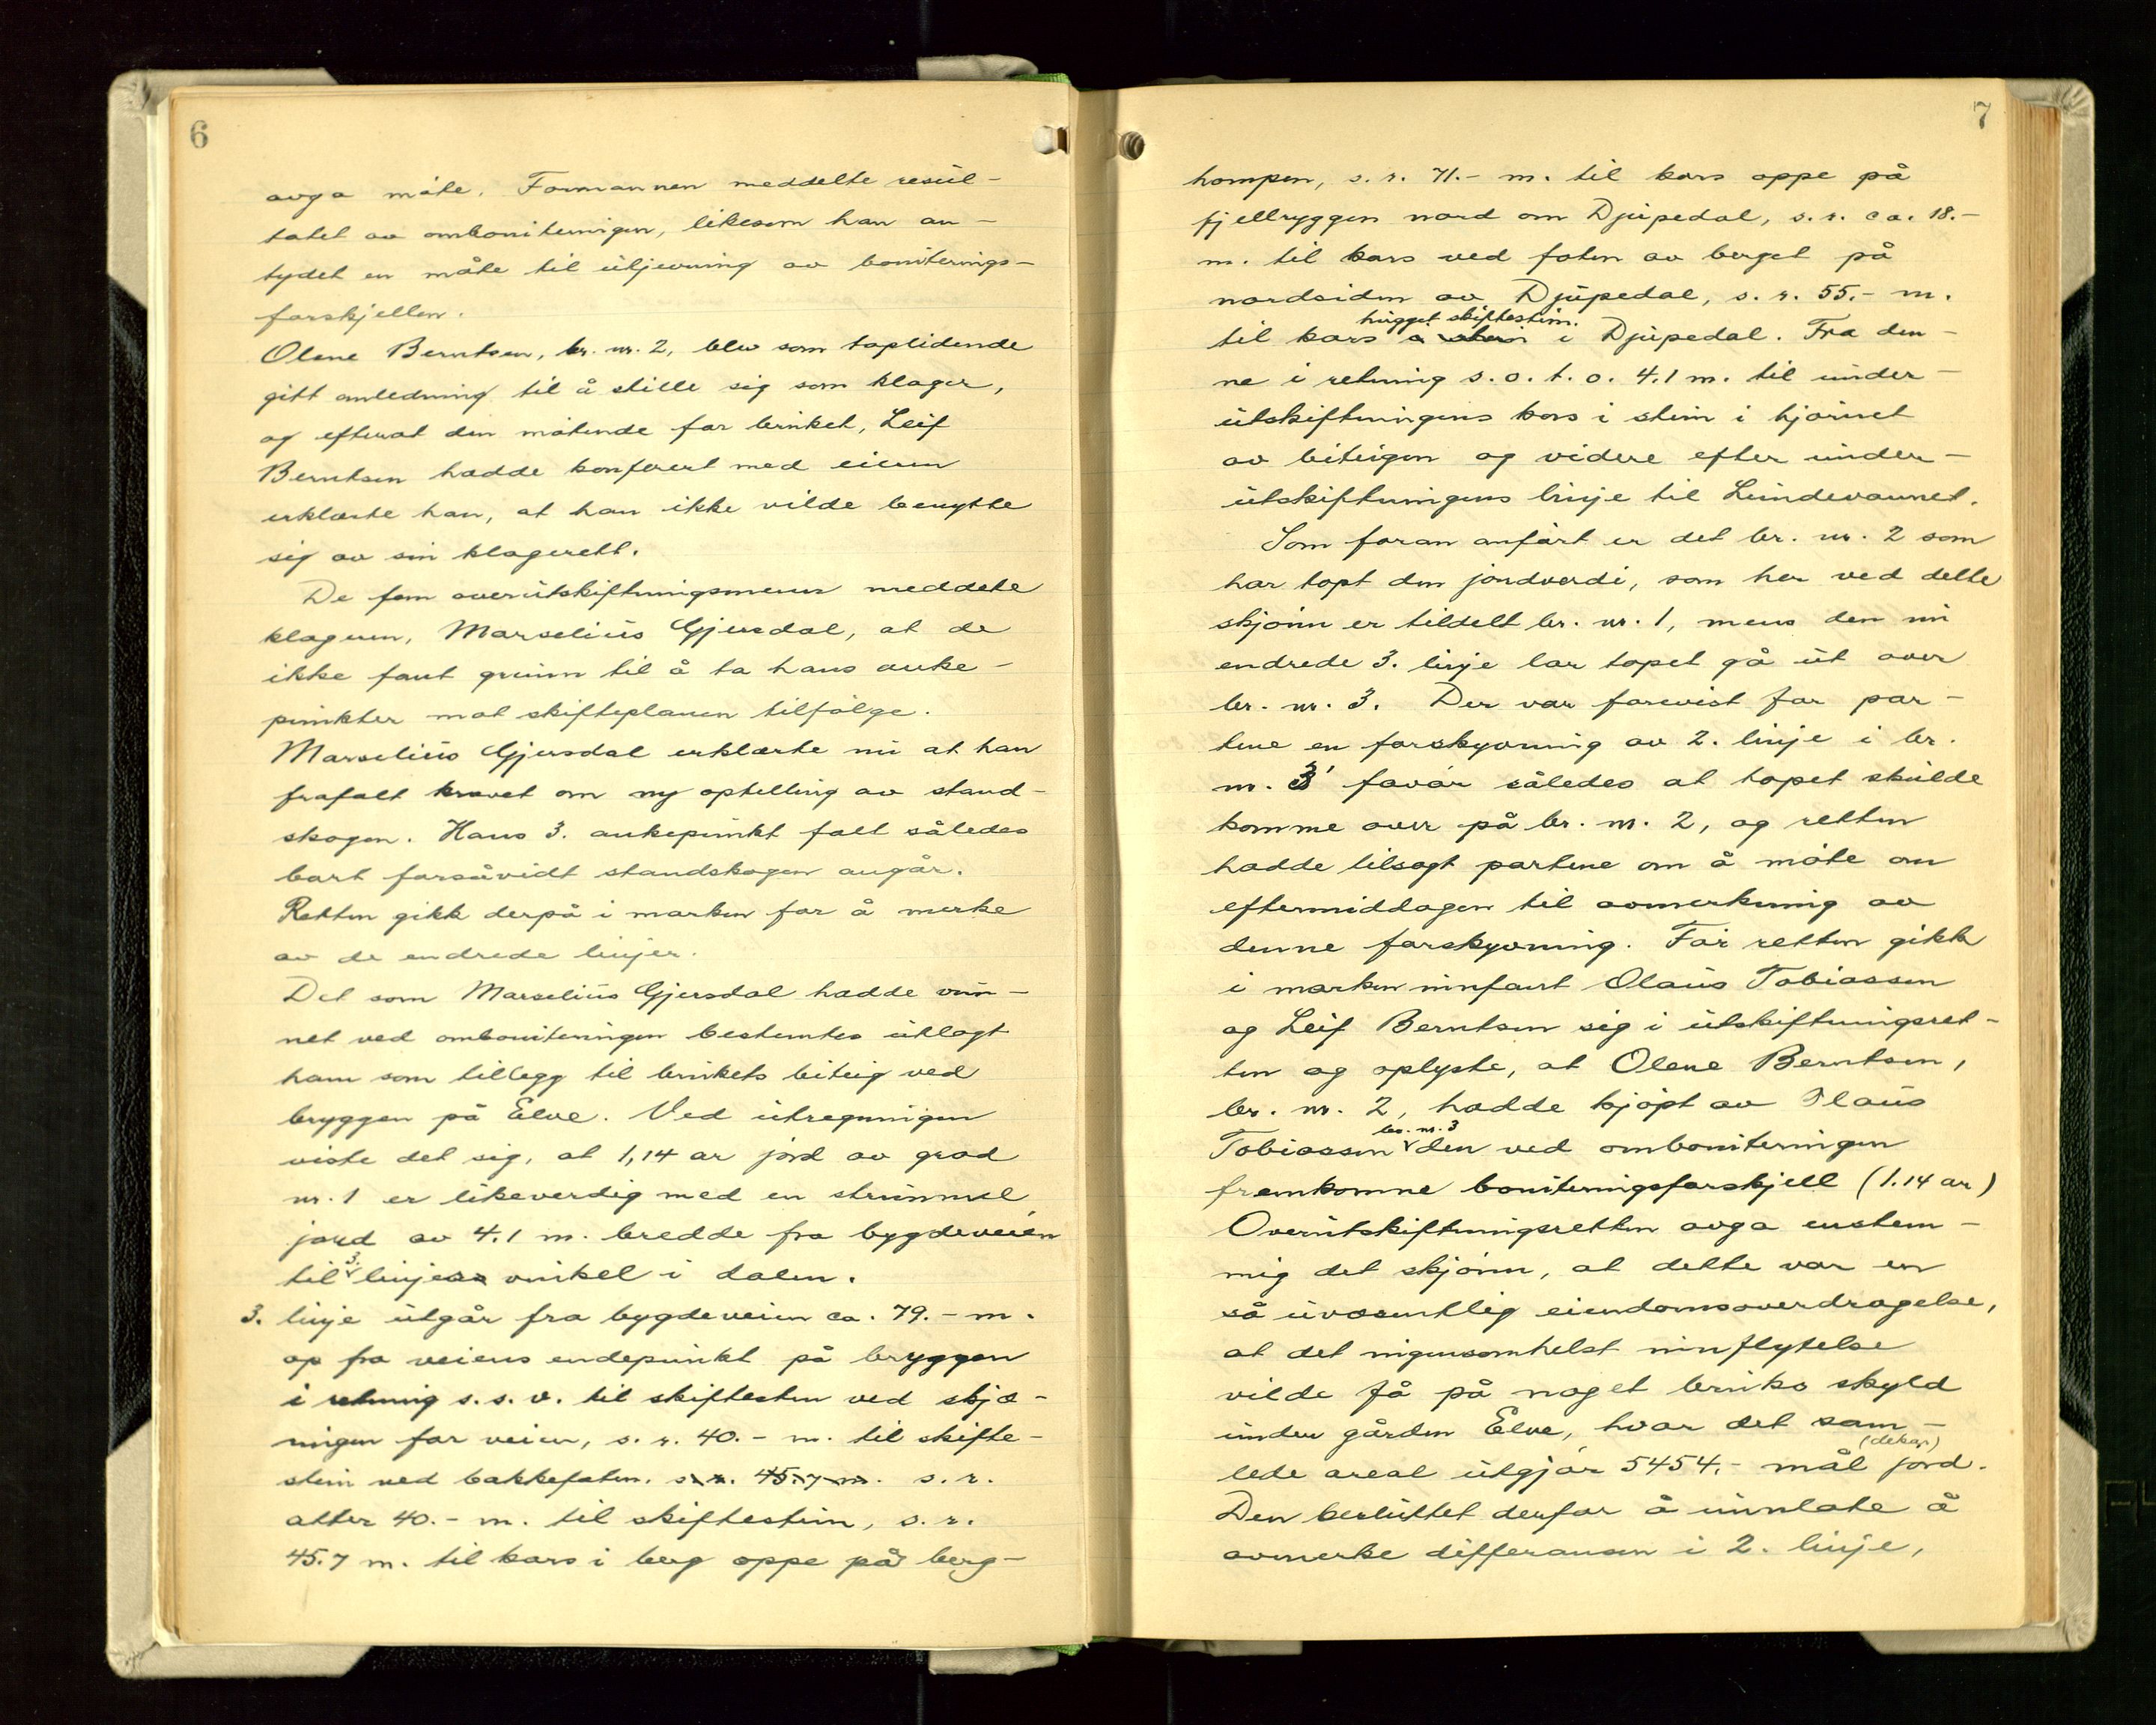 6
avga møte. Formannen meddelte resul-
tatet av omboniteringen, likesom han an-
tydet en måte til utjevning av boniterings-
forskjellen.
Olene Berntsen, br. nr. 2, blev som taplidende
gitt anledning til å stille sig som klager,
og efterat den møtende for bruket, Leif
Berntsen hadde konferert med eieren
erklærte han, at han ikke vilde benytte
sig av sin klagerett.
De fem overutskiftningsmenn meddelte
klageren, Marselius Gjersdal, at de
ikke fant grunn til å ta hans anke-
punkter mot skifteplanen tilfølge.
Marselius Gjersdal erklærte nu at han
frafalt kravet om ny optelling av stand-
skogen. Hans 3. ankepunkt falt således
bort forsåvidt standskogen angår.
Retten gikk derpå i marken for å merke
av de endrede linjer.
Det som Marselius Gjersdal hadde vun-
net ved omboniteringen bestemtes utlagt
ham som tillegg til brukets biteig ved
bryggen på Elve. Ved utregningen
viste det sig, at 1,14 ar jord av grad
nr. 1 er likeverdig med en strimmel
jord av 4.1 m. bredde fra bygdeveien
til 3. linjes vinkel i dalen.
3. linje utgår fra bygdeveien ca. 79.- m.
op fra veiens endepunkt på bryggen
i retning s.s.v. til skiftesten ved skjæ-
ringen for veien, s. r. 40.- m. til skifte-
stein ved bakkefoten. s. r. 45.7 m. s. r.
atter 40.- m. til skiftestein, s. r.
45.7 m. til kors i berg oppe på berg-
7
hompen, s. r. 71.- m. til kors oppe på
fjellryggen nord om Djupedal, s. r. ca. 18.-
m. til kors ved foten av berget på
nordsiden av Djupedal, s. r. 55.- m.
hugget skiftestein.
til kors i Djupedal. Fra den-
ne i retning s.o.t.o. 4.1 m. til under-
utskiftningens kors i stein i hjørnet
av biteigen og videre efter under-
utskiftningens linje til Lundevannet.
Som foran anført er det br. nr. 2 som
har tapt den jordverdi, som her ved dette
skjønn er tildelt br. nr. 1, mens den nu
endrede 3. linje lar tapet gå ut over
br. nr. 3. Der var forevist for par-
tene en forskyvning av 2. linje i br.
nr. 3' favør således at tapet skulde
komme over på br. nr. 2, og retten
hadde tilsagt partene om å møte om
eftermiddagen til avmerkning av
denne forskyvning. Før retten gikk
i marken innfant Olaus Tobiassen
og Leif Berntsen sig i utskiftningsret-
ten og oplyste, at Olene Berntsen,
br. nr. 2, hadde kjøpt av Olaus
br. nr. 3
Tobiassen den ved omboniteringen
fremkomne boniteringsforskjell (1.14 ar)
Overutskiftningsretten avga enstem-
mig det skjønn, at dette var en
så uvesentlig eiendomsoverdragelse,
at det ingensomhelst innflytelse
vilde få på noget bruks skyld
under gården Elve, hvor det sam-
(dekar)
lede areal utgjør 5454.- mål jord.
Den besluttet derfor å unnlate å
avmerke differansen i 2. linje,